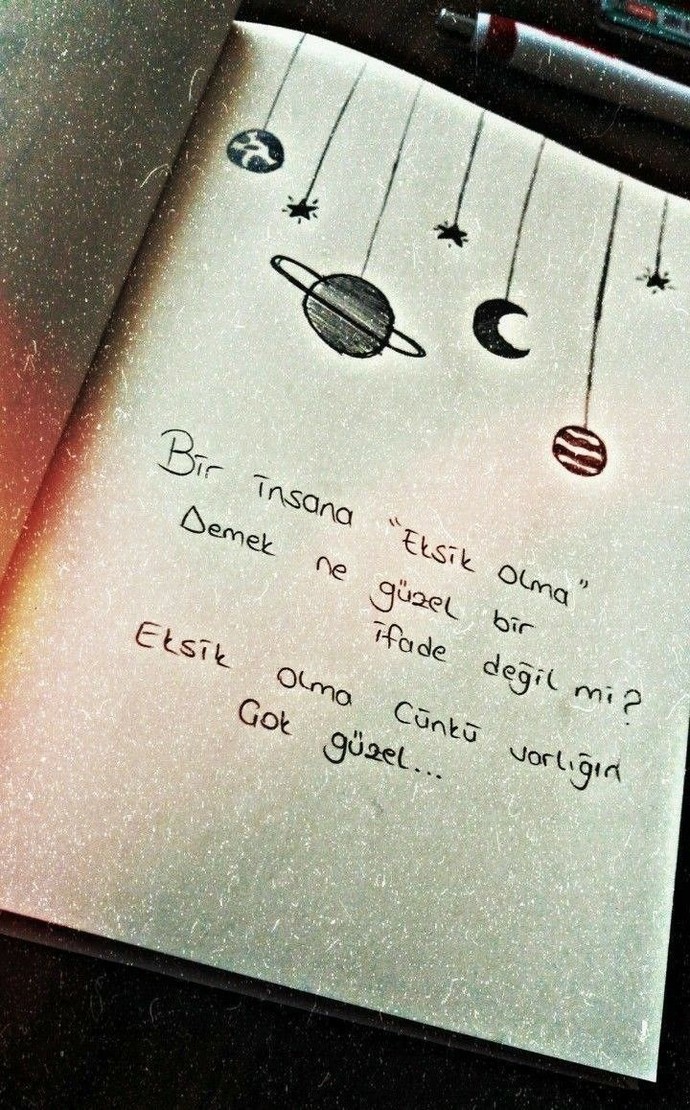 Bir insana "Eksik olma"
Demek ne güzel bir
ifade değil mi?
Eksik olma Cünkü varlığın
Cok güzel...